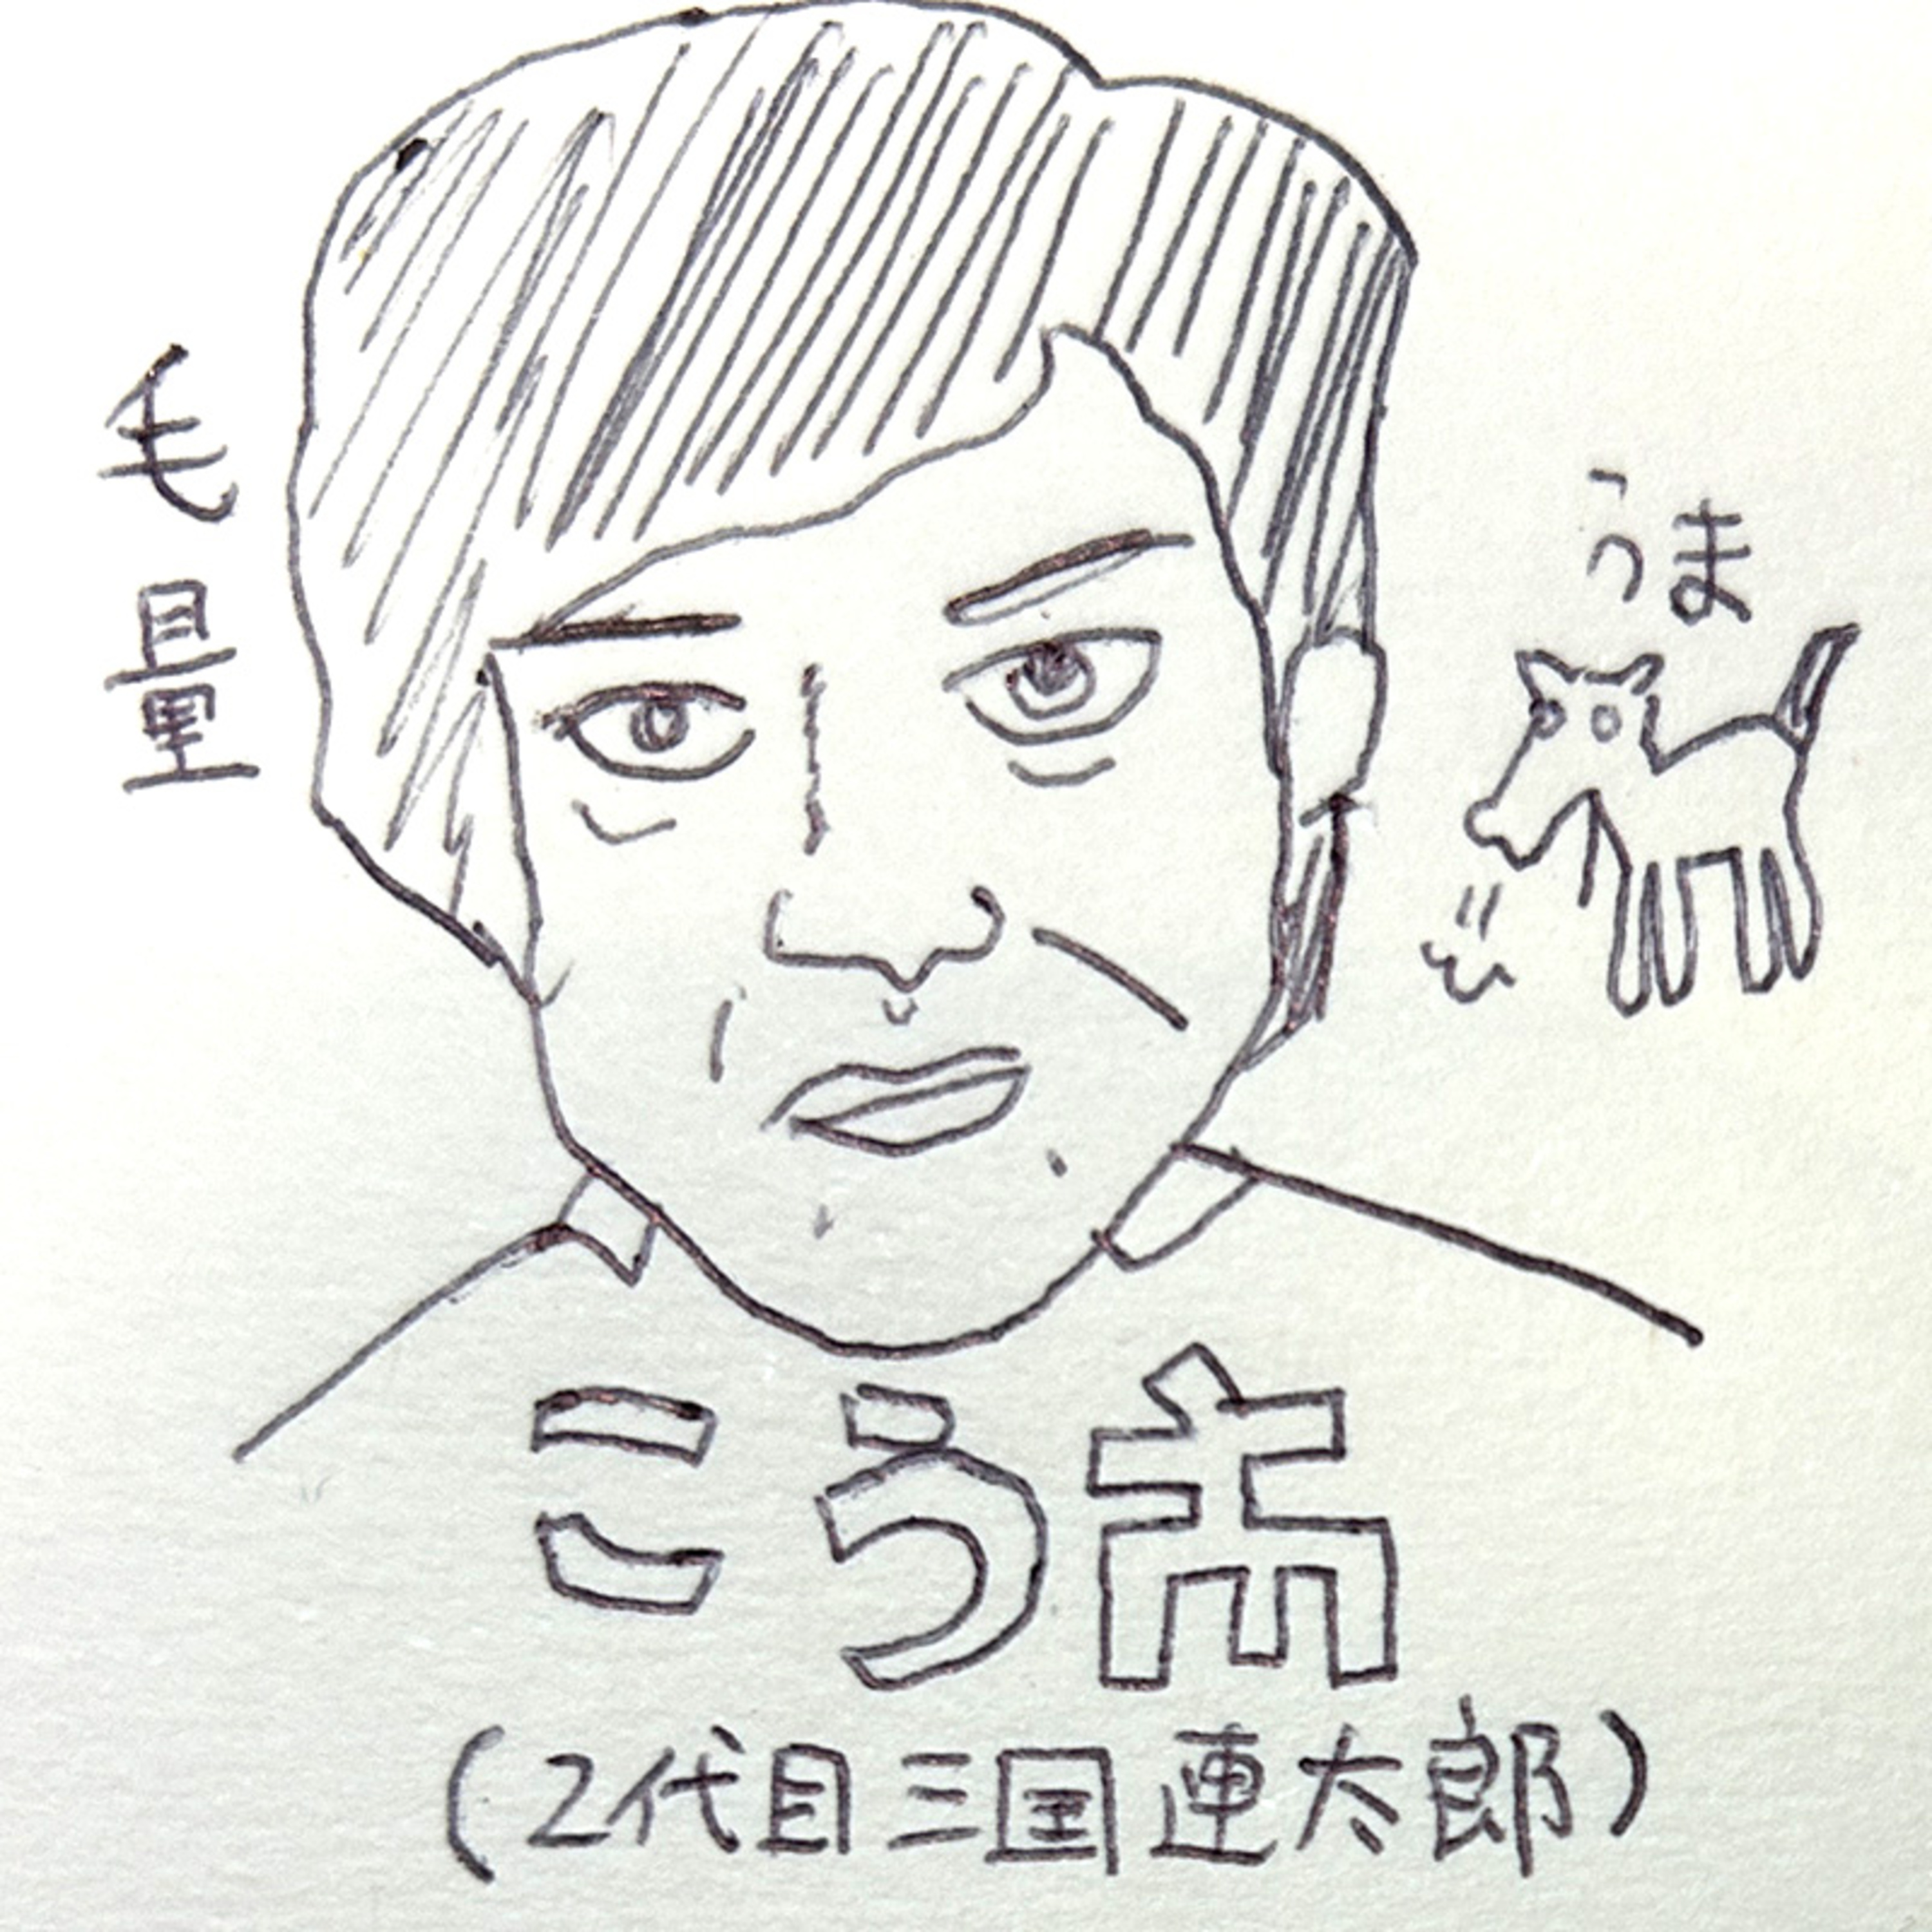 毛量
うま
こう市
(2代目三国連太郎)